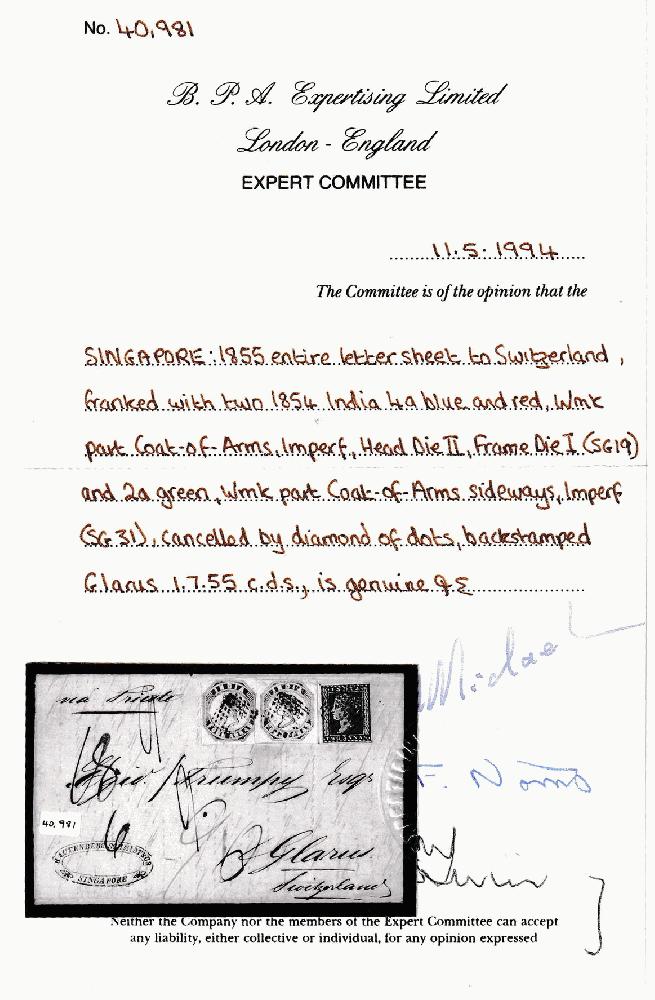 No. 40,981
B. P. A. Expertising Limited
London - England
EXPERT COMMITTEE
11.5.1994
The Committee is of the opinion that the
SINGAPORE: 1855 entire letter sheet to Switzerland,
franked with two 1854 India 4a blue and red, Wmk
part Coat-of-Arms, Imperf, Head Die II, Frame Die I (SG19)
and 2a green, Wmk part Coat-of-Arms sideways, Imperf
(SG 31), cancelled by diamond of dots, backstamped
Glarus 1.7.55 c.d.s., is genuine
via Trieste
Trumpy Esqr
40,981
Glarus
Switzerland
SINGAPORE
Neither the Company nor the members of the Expert Committee can accept
any liability, either collective or individual, for any opinion expressed